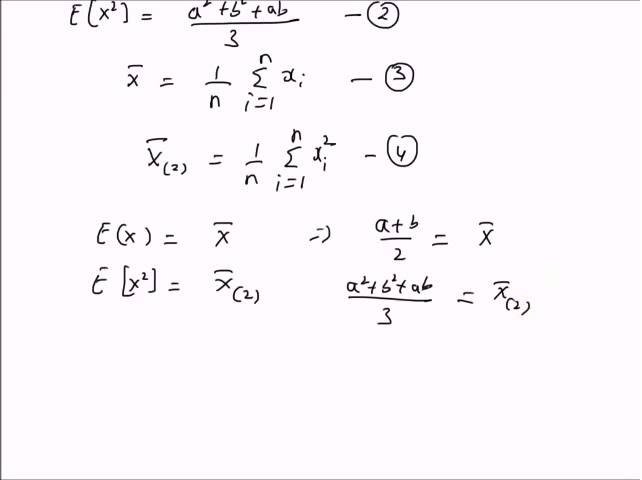 E[x²] = a²+b²+ab / 3 — ②
x̄ = 1/n Σ_{i=1}^{n} xᵢ — ③
x̄₍₂₎ = 1/n Σ_{i=1}^{n} xᵢ² — ④
E(x) = x̄ ⇒ a+b / 2 = x̄
E[x²] = x̄₍₂₎ a²+b²+ab / 3 = x̄₍₂₎